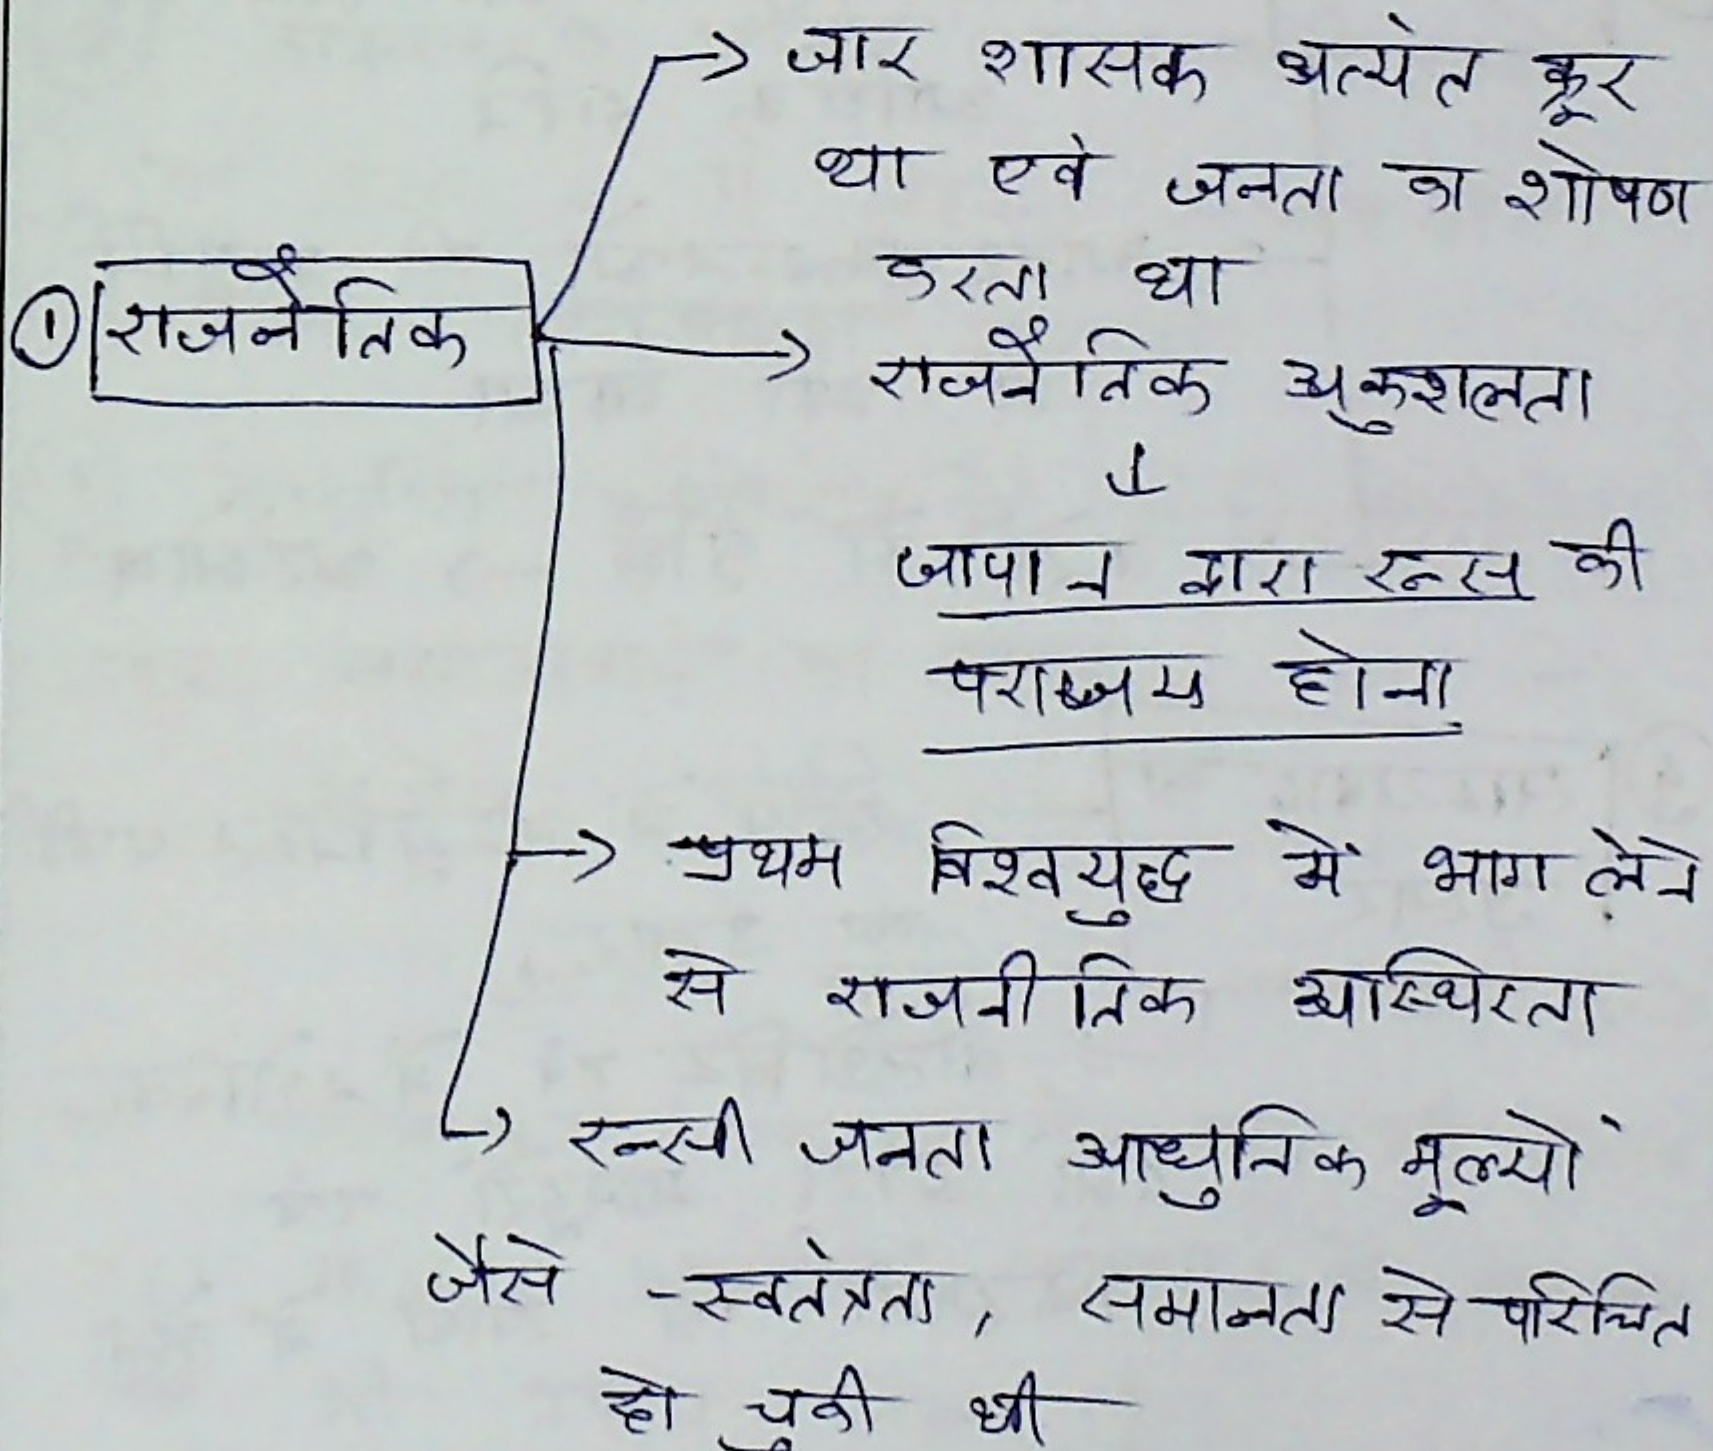 जार शासक अत्यंत क्रूर
था एवं जनता का शोषण
करता था
① राजनैतिक
राजनैतिक अकुशलता
जापान द्वारा रूस की
पराजय होना
प्रथम विश्वयुद्ध में भाग लेने
से राजनीतिक अस्थिरता
रूसी जनता आधुनिक मूल्यों
जैसे - स्वतंत्रता, समानता से परिचित
हो चुकी थी